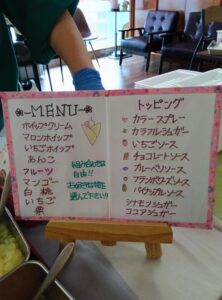 MENU
ホイップクリーム
マロンホイップ
いちごホイップ
あんこ
フルーツ
マンゴー
白桃
いちご
栗
組み合わせは
自由!!
お好きな物を
選んで下さい!!
トッピング
カラースプレー
カラフルシュガー
いちごソース
チョコレートソース
ブルーベリーソース
フランボワーズソース
パイナップルソース
シナモンシュガー
ココアシュガー